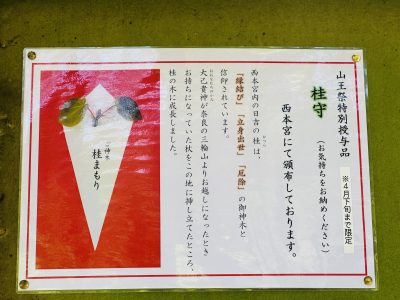 山王祭特別授与品
※4月下旬まで限定
桂守
（お気持ちをお納めください）
西本宮にて頒布しております。
西本宮内の日吉の桂は、
「縁結び」「立身出世」「厄除」の御神木と
信仰されています。
大己貴神が奈良の三輪山よりお越しになったとき
お持ちになっていた杖をこの地に挿し立てたところ、
桂の木に成長しました。
御神木
桂まもり